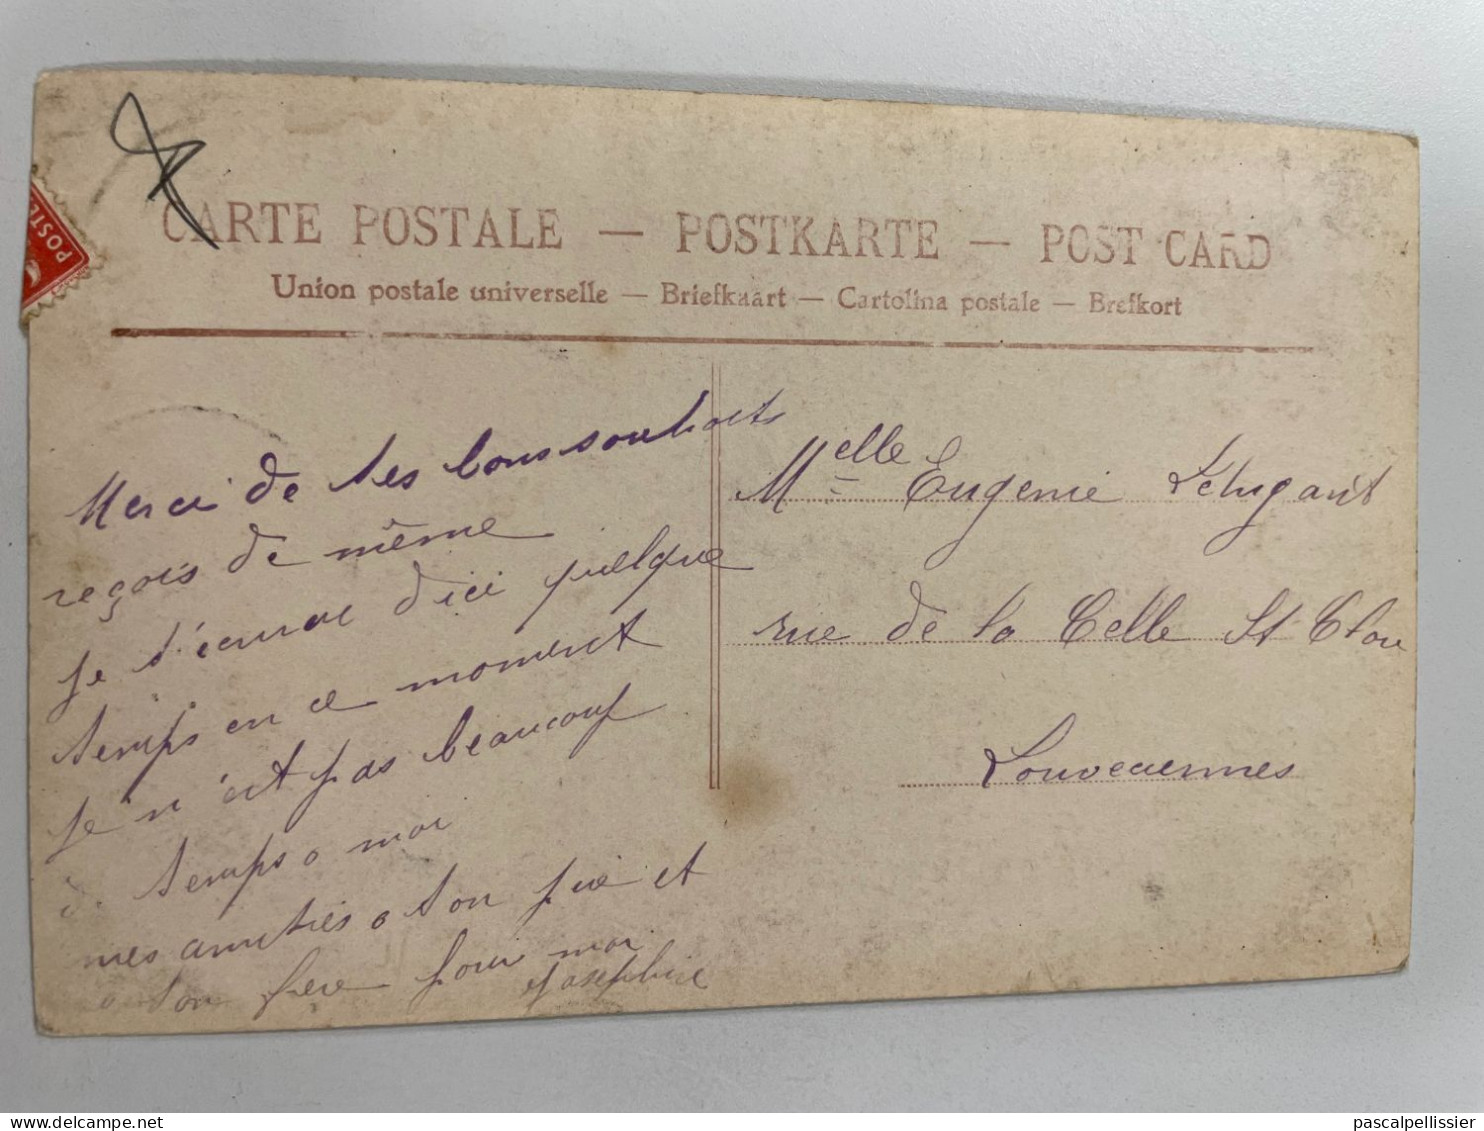 POSTE
CARTE POSTALE — POSTKARTE — POST CARD
Union postale universelle — Briefkaart — Cartolina postale — Brefkort
Merci de tes bons souhaits
reçois de même
je t'écrirai d'ici quelque
temps en ce moment
je n'ait pas beaucoup
de temps a moi
mes amitiés a ton père et
a ton frère pour moi
Joséphine
Melle Eugenie
rue de la Celle St Clou
Louveciennes
pascalpellissier